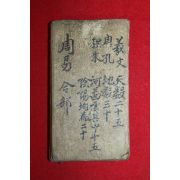 羲文 天數二十五
周孔 地數三十
程朱 河啚數五十五
陰陽均 二十
周易